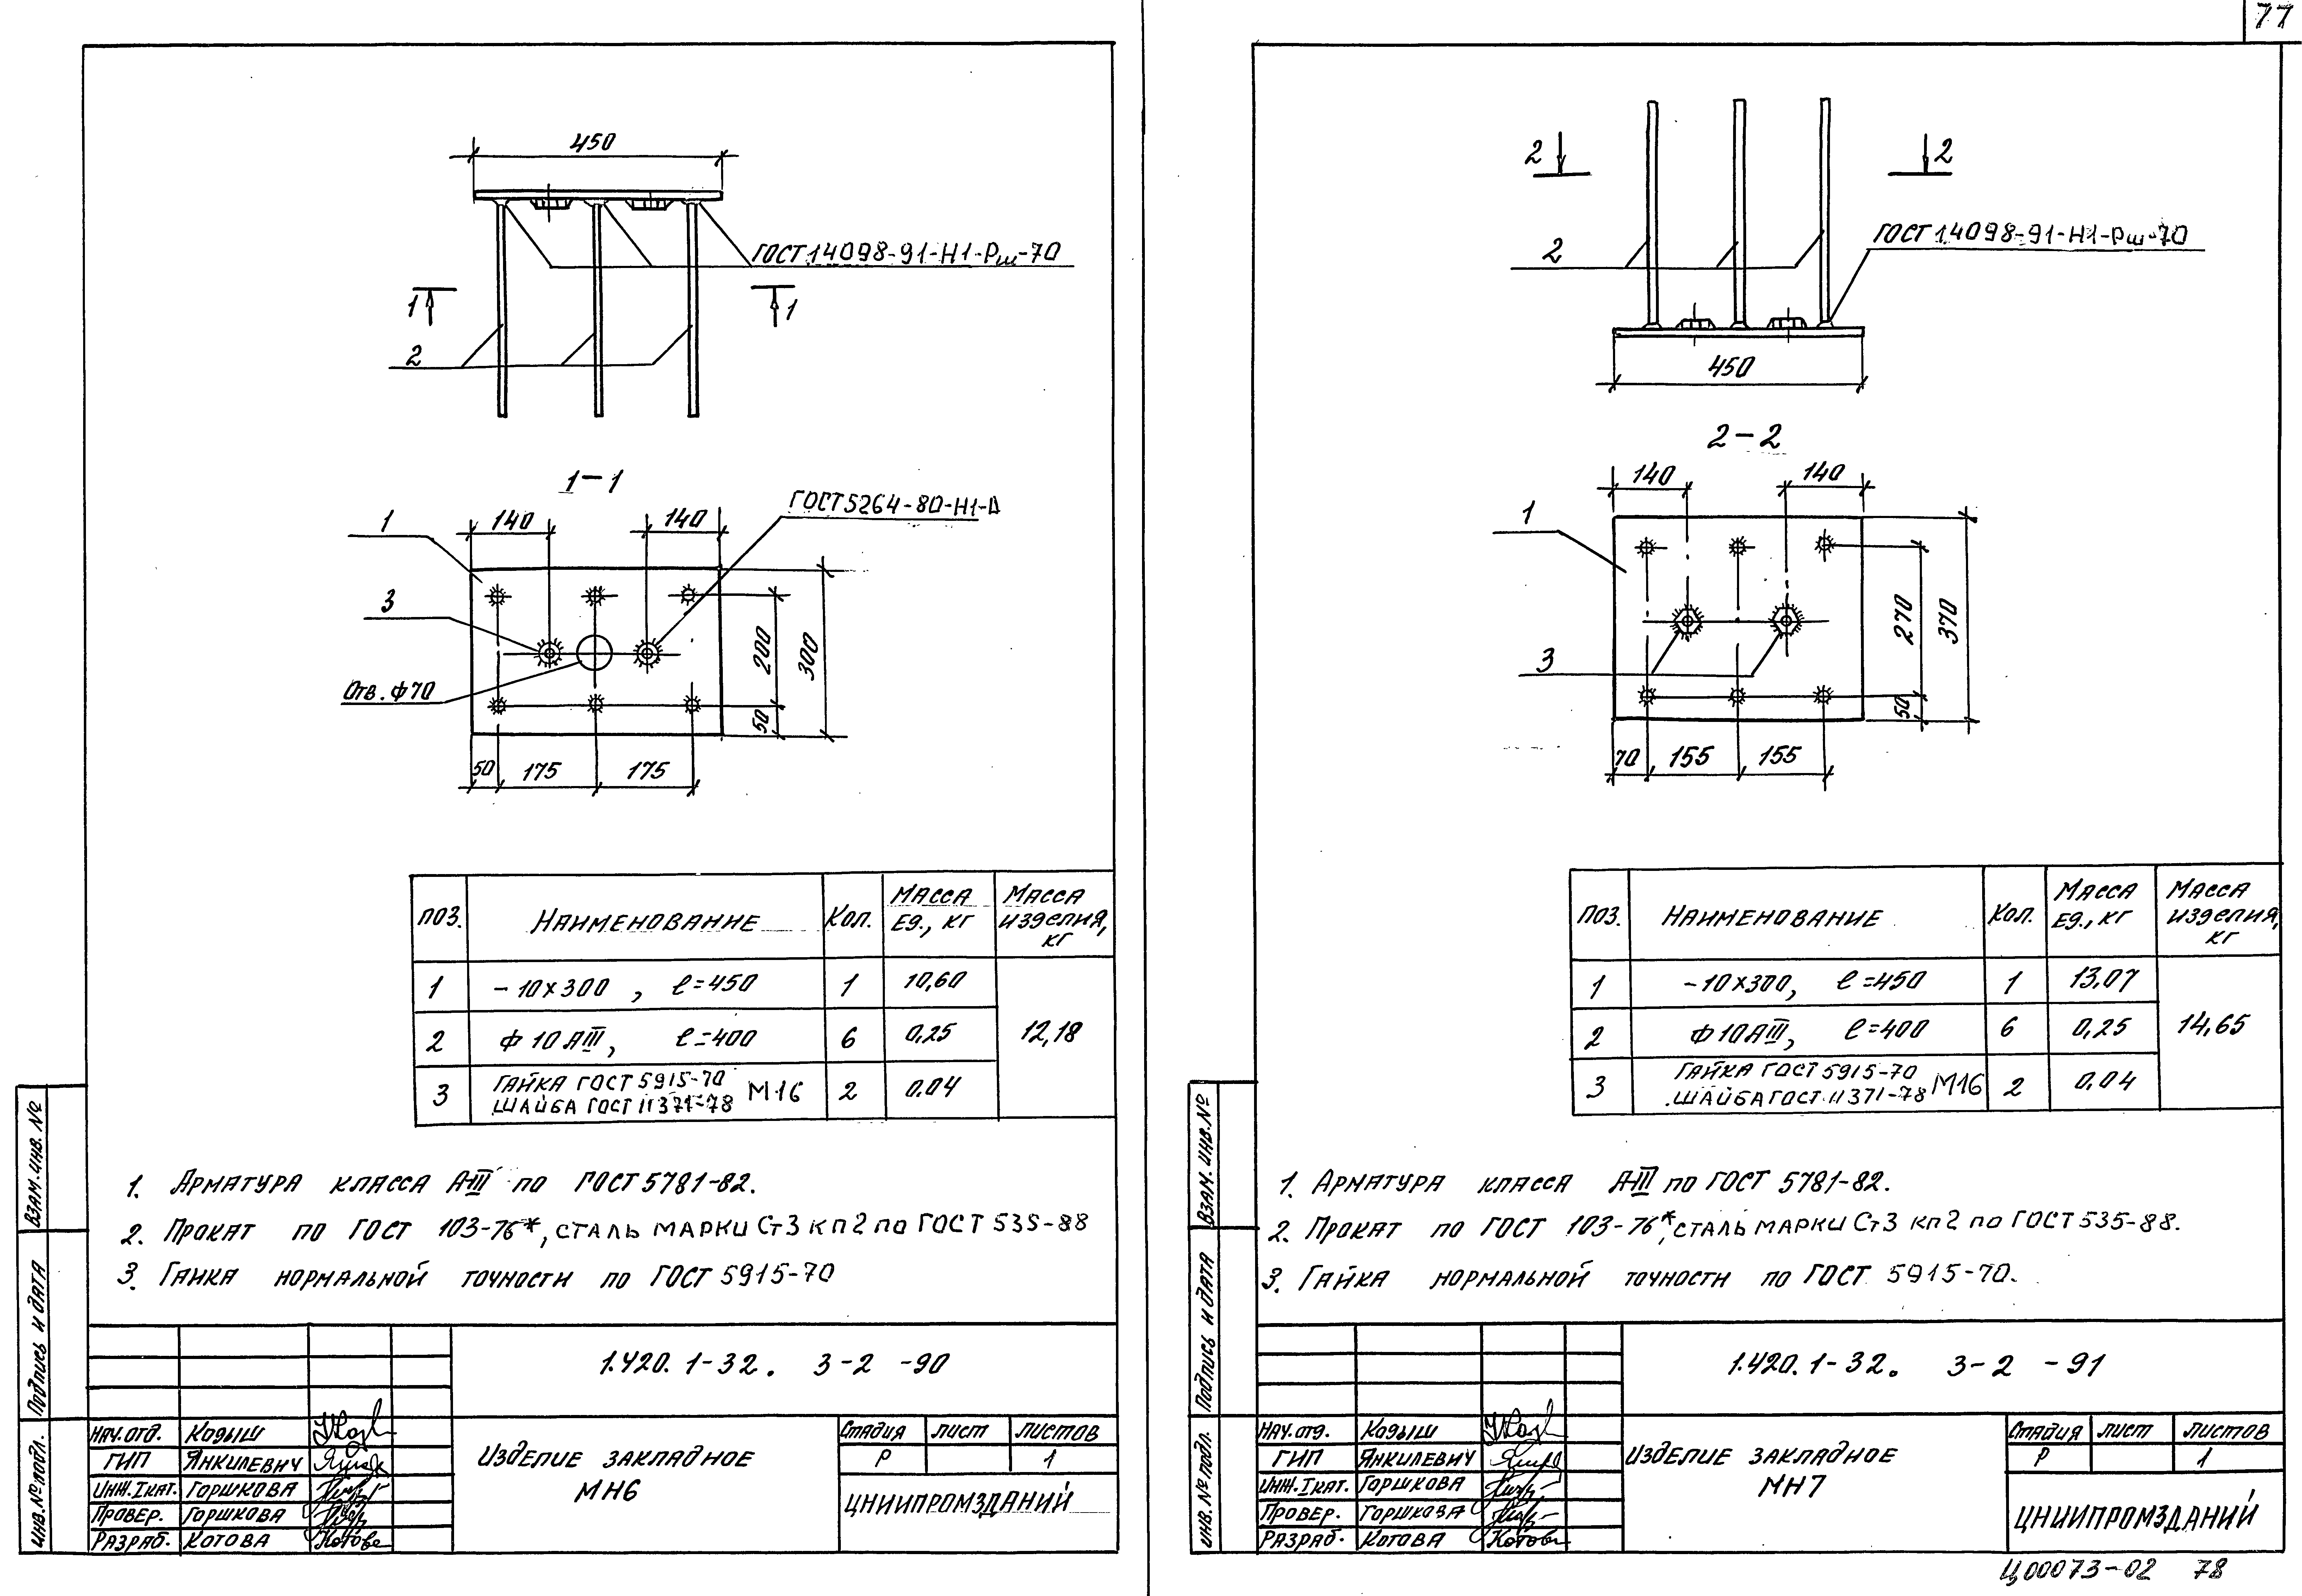 77
450
ГОСТ 14098-91-Н1-Рш-70
1 1
2
1-1
140 140
ГОСТ 5264-80-Н1-Δ
1
3
Отв. ф70
200
300
50
50 175 175
ПОЗ. НАИМЕНОВАНИЕ КОЛ. МАССА ЕД., КГ МАССА ИЗДЕЛИЯ, КГ
1 -10×300, ℓ=450 1 10,60
2 ф10АIII, ℓ=400 6 0,25 12,18
3 ГАЙКА ГОСТ 5915-70
ШАЙБА ГОСТ 11371-78 М16 2 0,04
1. АРМАТУРА КЛАССА А-III ПО ГОСТ 5781-82.
2. ПРОКАТ ПО ГОСТ 103-76*, СТАЛЬ МАРКИ Ст3 кп2 ПО ГОСТ 535-88
3. ГАЙКА НОРМАЛЬНОЙ ТОЧНОСТИ ПО ГОСТ 5915-70
1.420.1-32. 3-2 -90
НАЧ.ОТД. КОДЫШ
ГИП ЯНКИЛЕВИЧ
ИНЖ.I КАТ. ГОРШКОВА
ПРОВЕР. ГОРШКОВА
РАЗРАБ. КОТОВА
ИЗДЕЛИЕ ЗАКЛАДНОЕ
МН6
СТАДИЯ ЛИСТ ЛИСТОВ
Р 1
ЦНИИПРОМЗДАНИЙ
ВЗАМ. ИНВ. №
ПОДПИСЬ И ДАТА
ИНВ. № ПОДЛ.
2 2
ГОСТ 14098-91-Н1-Рш-70
2
450
2-2
140 140
1
3
270
370
50
70 155 155
ПОЗ. НАИМЕНОВАНИЕ КОЛ. МАССА ЕД., КГ МАССА ИЗДЕЛИЯ, КГ
1 -10×300, ℓ=450 1 13,07
2 ф10АIII, ℓ=400 6 0,25 14,65
3 ГАЙКА ГОСТ 5915-70
ШАЙБА ГОСТ 11371-78 М16 2 0,04
1. АРМАТУРА КЛАССА А-III ПО ГОСТ 5781-82.
2. ПРОКАТ ПО ГОСТ 103-76*, СТАЛЬ МАРКИ Ст3 кп2 ПО ГОСТ 535-88.
3. ГАЙКА НОРМАЛЬНОЙ ТОЧНОСТИ ПО ГОСТ 5915-70.
1.420.1-32. 3-2 -91
НАЧ.ОТД. КОДЫШ
ГИП ЯНКИЛЕВИЧ
ИНЖ.I КАТ. ГОРШКОВА
ПРОВЕР. ГОРШКОВА
РАЗРАБ. КОТОВА
ИЗДЕЛИЕ ЗАКЛАДНОЕ
МН7
СТАДИЯ ЛИСТ ЛИСТОВ
Р 1
ЦНИИПРОМЗДАНИЙ
ВЗАМ. ИНВ. №
ПОДПИСЬ И ДАТА
ИНВ. № ПОДЛ.
Ц00073-02 78